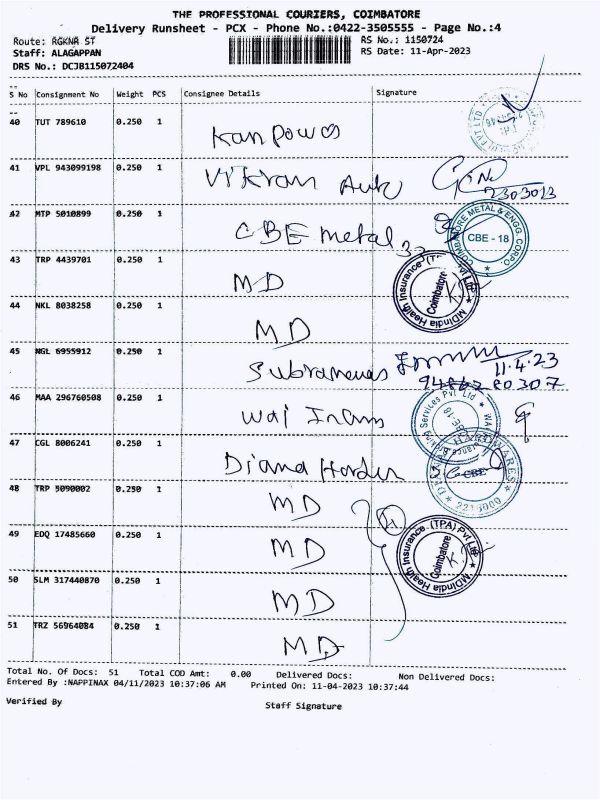 THE PROFESSIONAL COURIERS, COIMBATORE
Delivery Runsheet - PCX - Phone No.:0422-3505555 - Page No.:4
Route: RGKNR ST RS No.: 1150724
Staff: ALAGAPPAN RS Date: 11-Apr-2023
DRS No.: DCJB115072404
S No Consignment No Weight PCS Consignee Details Signature
40 TUT 789610 0.250 1
41 VPL 943099198 0.250 1 Vikran Auto
2303013
42 MTP 5010899 0.250 1 CBE metal
COIMBATORE METAL & ENGG. CORPO.
CBE - 18
43 TRP 4439701 0.250 1 MD
MDIndia Health Insurance (TPA) Pvt Ltd
Coimbatore
44 NKL 8038258 0.250 1 MD
45 NGL 6955912 0.250 1
11.4.23
46 MAA 296760508 0.250 1
Services Pvt Ltd
47 CGL 8006241 0.250 1 Diana
CBE
2215000
48 TRP 5090002 0.250 1 MD
49 EDQ 17485660 0.250 1 MD
MDIndia Health Insurance (TPA) Pvt Ltd
Coimbatore
50 SLM 317440870 0.250 1 MD
51 TRZ 56964084 0.250 1 MD
Total No. Of Docs: 51 Total COD Amt: 0.00 Delivered Docs: Non Delivered Docs:
Entered By :NAPPINAX 04/11/2023 10:37:06 AM Printed On: 11-04-2023 10:37:44
Verified By Staff Signature